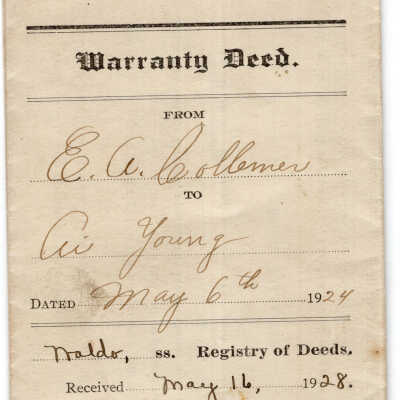 Warranty Deed.
FROM
E. A. Collemer
TO
Ai Young
DATED May 6th 1924
Waldo, ss. Registry of Deeds.
Received May 16, 1928.